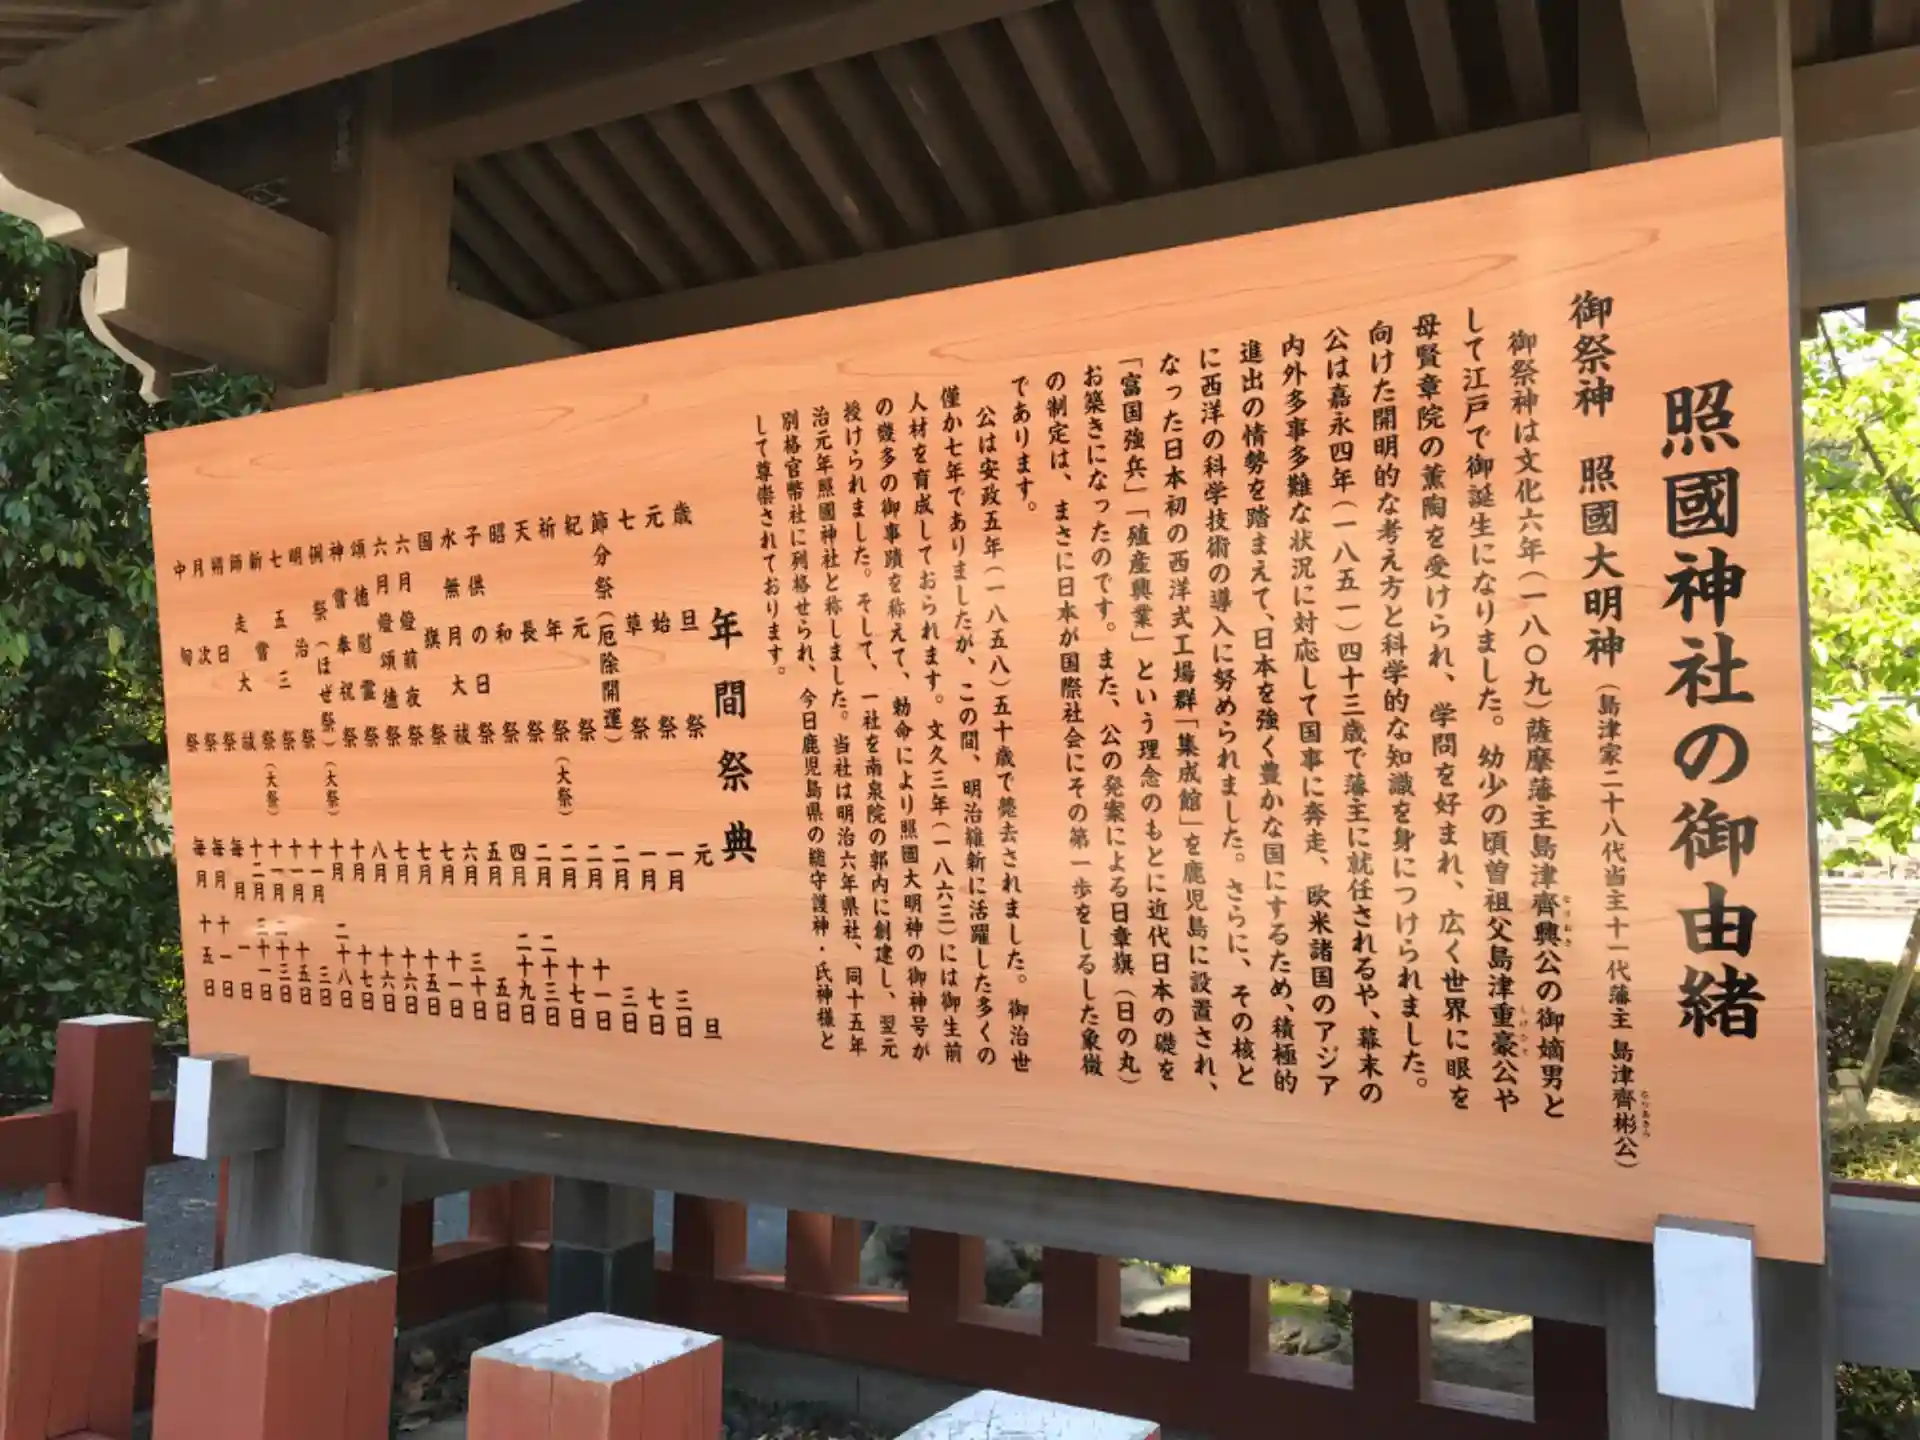 照國神社の御由緒
御祭神 照國大明神(島津家二十八代当主十一代藩主 島津齊彬公)
なりあきら
御祭神は文化六年(一八〇九)薩摩藩主島津齊興公の御嫡男と
なりおき
して江戸で御誕生になりました。幼少の頃曽祖父島津重豪公や
しげひで
母賢章院の薫陶を受けられ、学問を好まれ、広く世界に眼を
向けた開明的な考え方と科学的な知識を身につけられました。
公は嘉永四年(一八五一)四十三歳で藩主に就任されるや、幕末の
内外多事多難な状況に対応して国事に奔走、欧米諸国のアジア
進出の情勢を踏まえて、日本を強く豊かな国にするため、積極的
に西洋の科学技術の導入に努められました。さらに、その核と
なった日本初の西洋式工場群「集成館」を鹿児島に設置され、
「富国強兵」「殖産興業」という理念のもとに近代日本の礎を
お築きになったのです。また、公の発案による日章旗(日の丸)
の制定は、まさに日本が国際社会にその第一歩をしるした象徴
であります。
公は安政五年(一八五八)五十歳で薨去されました。御治世
僅か七年でありましたが、この間、明治維新に活躍した多くの
人材を育成しておられます。文久三年(一八六三)には御生前
の幾多の御事蹟を称えて、勅命により照國大明神の御神号が
授けられました。そして、一社を南泉院の郭内に創建し、翌元
治元年照國神社と称しました。当社は明治六年県社、同十五年
別格官幣社に列格せられ、今日鹿児島県の総守護神・氏神様と
して尊崇されております。
年間祭典
歳旦祭 元旦
元始祭 一月三日
七草祭 一月七日
節分祭(厄除開運) 二月三日
紀元祭 二月十一日
祈年祭(大祭) 二月十七日
天長祭 二月二十三日
昭和祭 四月二十九日
子供の日祭 五月五日
水無月大祓 六月三十日
国旗祭 七月十一日
六月燈前夜祭 七月十五日
六月燈頌徳祭 七月十六日
頌徳慰霊祭 八月十七日
神嘗奉祝祭 十月十七日
例祭(ほぜ祭)(大祭) 十月二十八日
明治祭 十一月三日
七五三祭 十一月十五日
新嘗祭(大祭) 十一月二十三日
師走大祓 十二月三十一日
朔日祭 毎月一日
月次祭 毎月十一日
中旬祭 毎月十五日